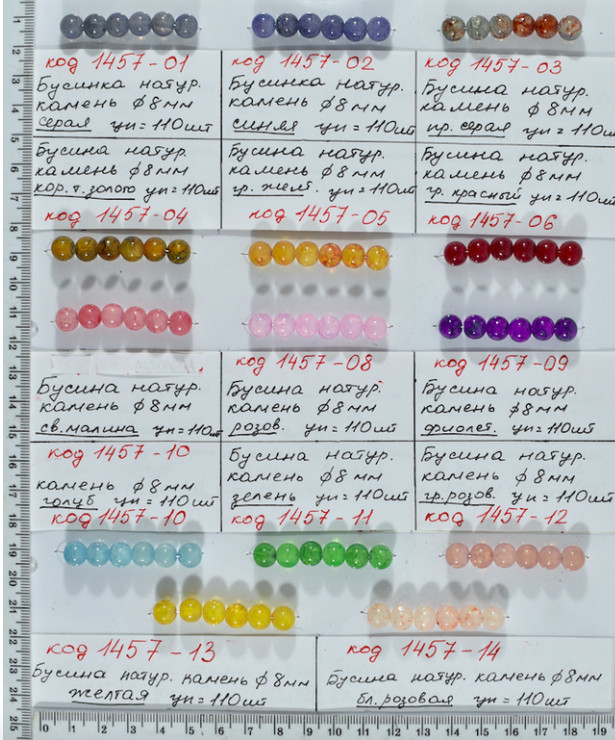 код 1457-01
Бусинка натур.
камень ф8мм
серая уп=110шт
код 1457-02
Бусинка натур.
камень ф8мм
синяя уп=110шт
код 1457-03
Бусина натур.
камень ф8мм
пр. серая уп=110шт
Бусина натур.
камень ф8мм
кор. т. золото уп=110шт
код 1457-04
Бусина натур.
камень ф8мм
гр. желт. уп=110шт
код 1457-05
Бусина натур.
камень ф8мм
гр. красный уп=110шт
код 1457-06
Бусина натур.
камень ф8мм
св. малина уп=110шт
код 1457-08
Бусина натур.
камень ф8мм
розов. уп=110шт
код 1457-09
Бусина натур.
камень ф8мм
фиолет. уп=110шт
код 1457-10
камень ф8мм
голуб уп=110шт
код 1457-10
Бусина натур.
камень ф8мм
зелень уп=110шт
код 1457-11
Бусина натур.
камень ф8мм
гр. розов. уп=110шт
код 1457-12
код 1457-13
Бусина натур. камень ф8мм
желтая уп=110шт
код 1457-14
Бусина натур. камень ф8мм
бл. розовая уп=110шт
0 1 2 3 4 5 6 7 8 9 10 11 12 13 14 15 16 17 18 19